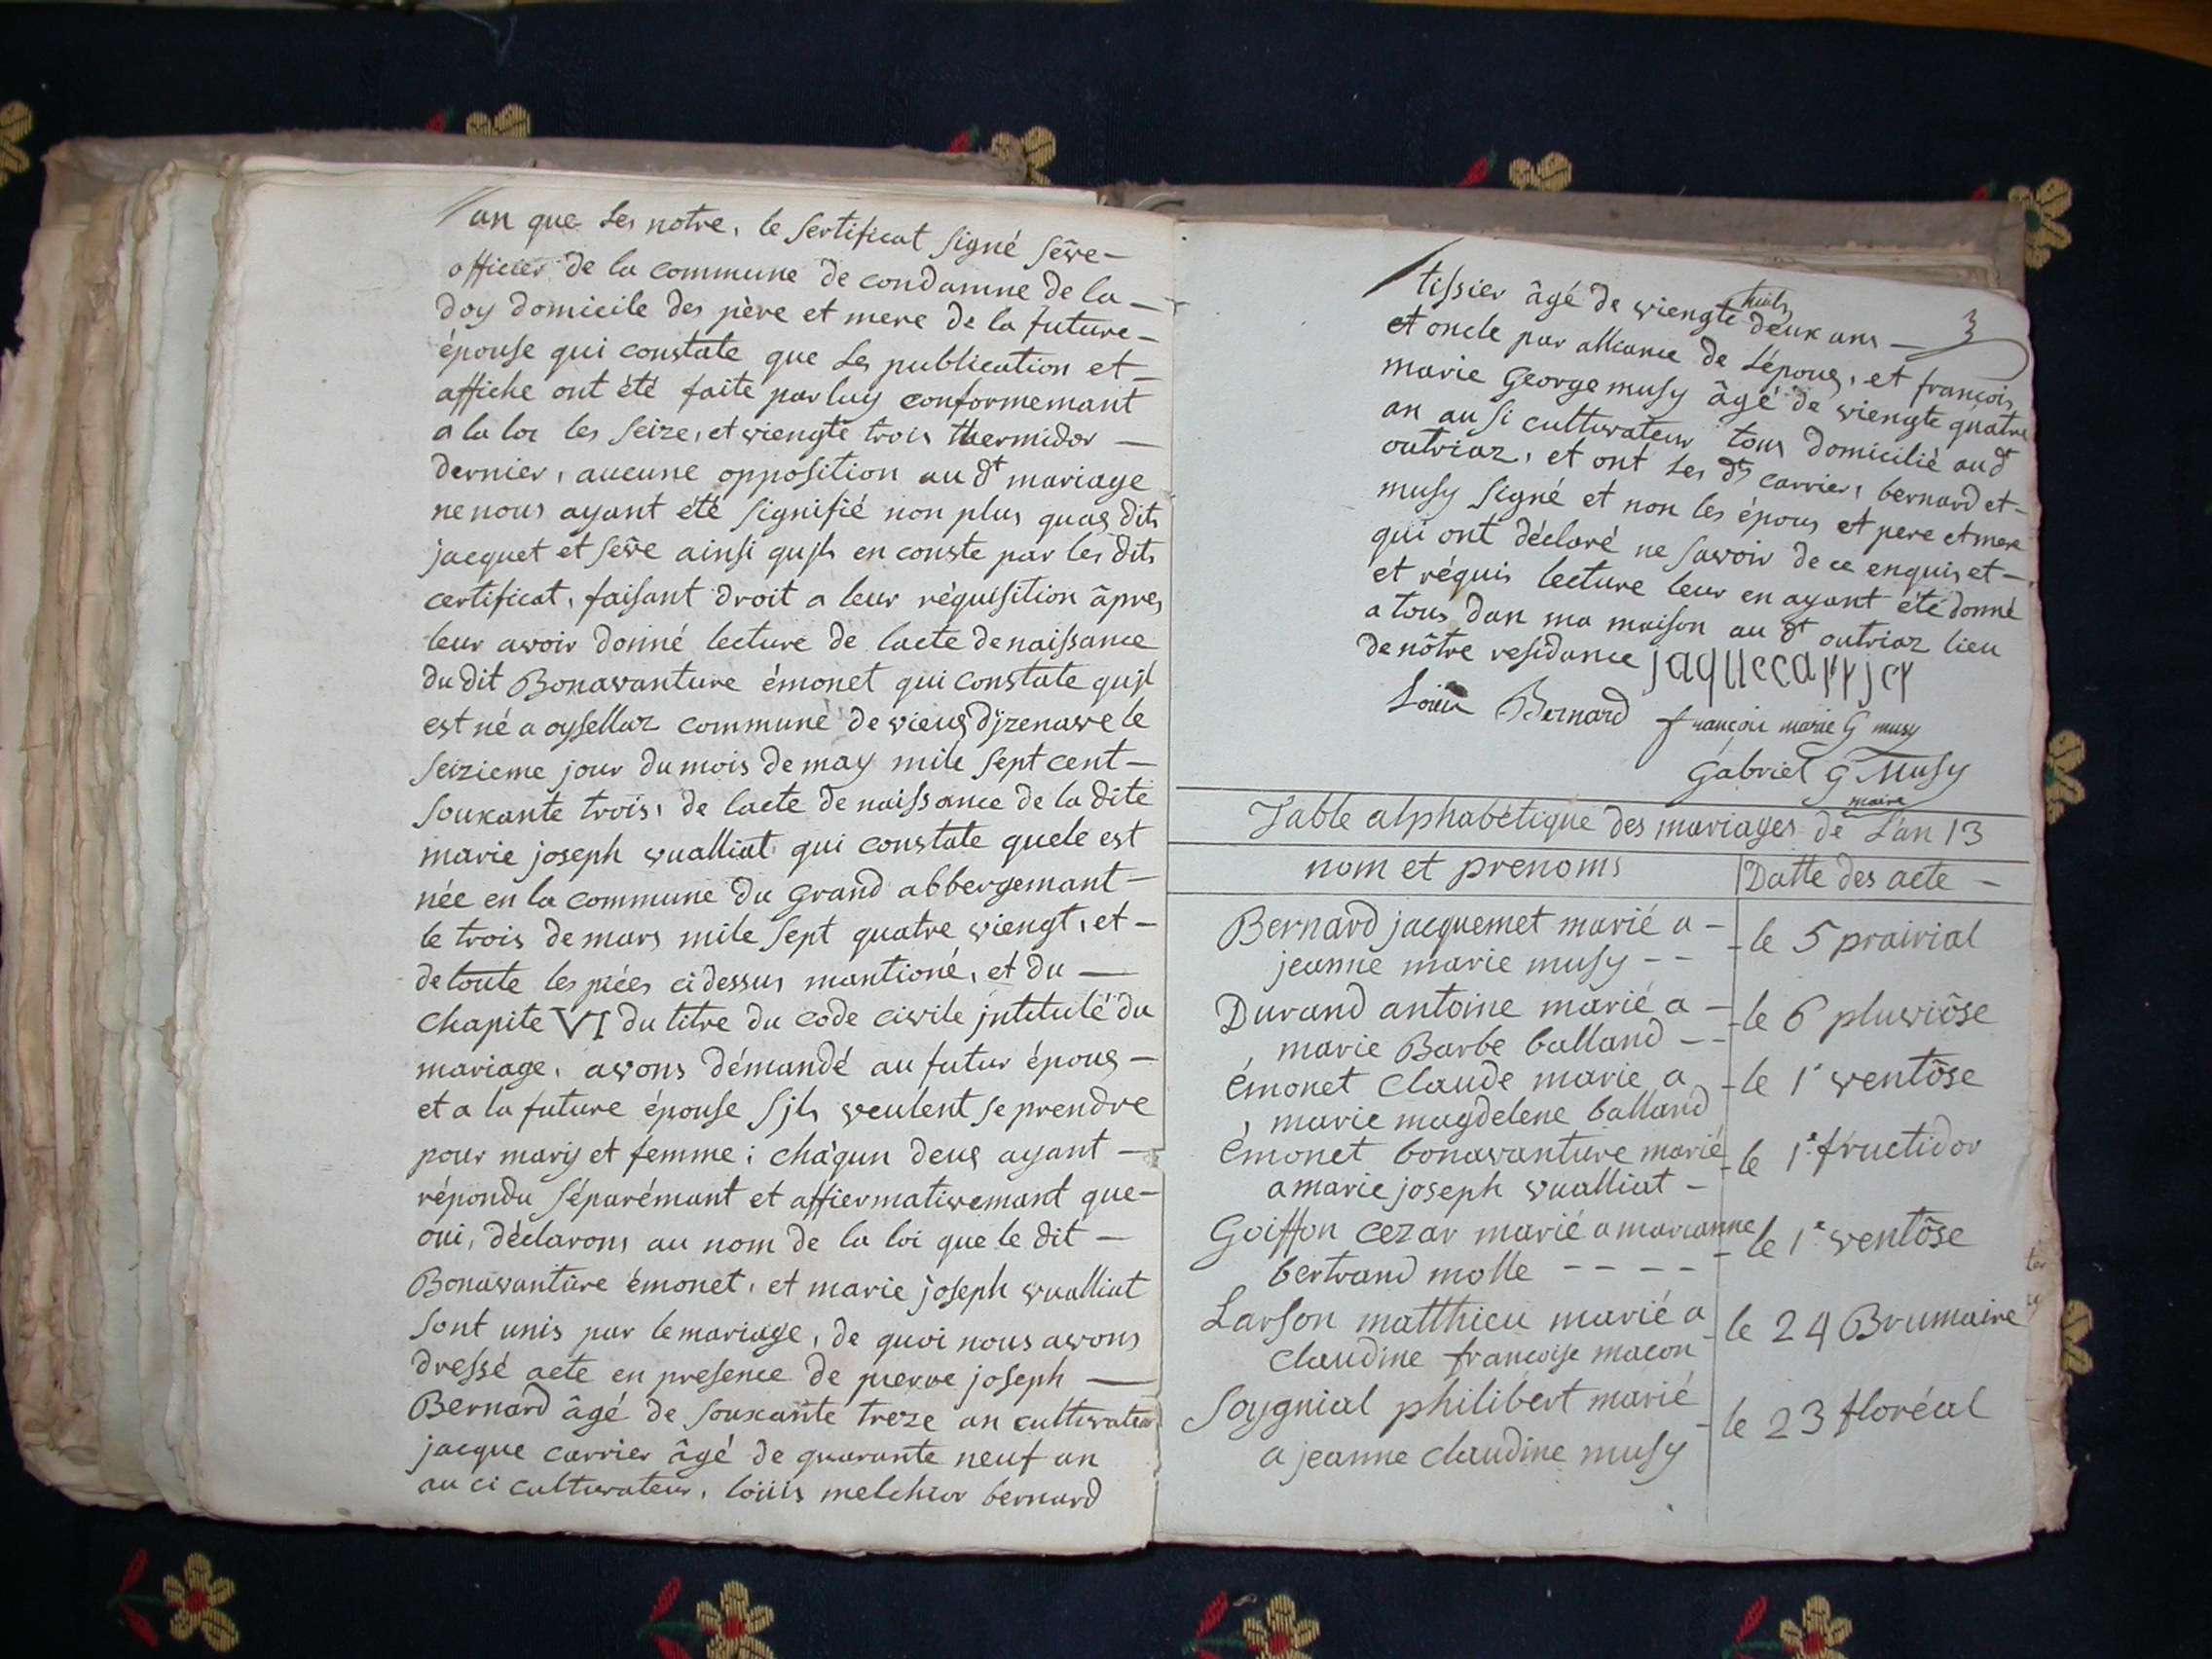 an que les notre, le sertificat signé sêve-
officier de la commune de condamne de la-
doy domicile des père et mere de la future-
épouse qui constate que les publication et-
affiche ont été faite par luy conformemant
a la loi les seize, et viengte trois thermidor-
dernier, aucune opposition au dt mariage
ne nous ayant été signifié non plus quaux dits
jacquet et sêve ainsi qujls en conste par les dits
certificat, faisant droit a leur réquisition âpres
leur avoir donné lecture de lacte de naissance
du dit Bonavanture émonet qui constate qujl
est né a oysellaz commune de vieux djzenave le
seizieme jour du mois de may mile sept cent-
souxante trois, de lacte de naissance de la dite
marie joseph vualliat qui constate quele est
née en la commune du grand abbergemant-
le trois de mars mile sept quatre viengt, et-
de toute les piées ci dessus mantioné, et du-
chapite VI du titre du côde civile jntitulé du
mariage, avons démandé au futur époux-
et a la future épouse sjls veulent se prendre
pour mary et femme; châqun deux ayant-
répondu séparémant et affiermativemant que-
oui, déclarons au nom de la loi que le dit-
Bonavanture émonet, et marie joseph vualliat
sont unis par le mariage, de quoi nous avons
dressé acte en presence de pierre joseph-
Bernard âgé de souxante treze an cultivateur
jacque carrier âgé de quarante neuf an
au ci cultivateur, loüis melchior bernard
3
tissier âgé de viengte huit deux ans-
et oncle par alliance de Lépoux, et françois
marie George musy âgé de viengte quatre
an ausi cultivateur tous domicilié au dt
outriaz, et ont les dts carrier, bernard et-
musy signé et non les époux et pere et mere
qui ont déclaré ne savoir de ce enquis et-
et réquis lecture leur en ayant été donné
a tous dan ma maison au dt outriaz lieu
de nôtre residance jaquecarrjer
Louis Bernard françois marie G musy
Gabriel G Musy
maire
Table alphabétique des mariages de L'an 13
nom et prenoms Datte des acte-
Bernard jacquemet marié a - le 5 prairial
jeanne marie musy --
Durand antoine marié a - le 6 pluviôse
marie Barbe balland --
émonet claude marie a - le 1r ventôse
marie magdelene balland
émonet bonavanture marié - le 1e fructidor
a marie joseph vualliat -
Goiffon cezar marié a marianne - le 1e ventôse
bertrand molle ----
Larson matthieu marié a - le 24 Brumaire
claudine françoise macon
Soygnial philibert marié - le 23 floréal
a jeanne claudine musy